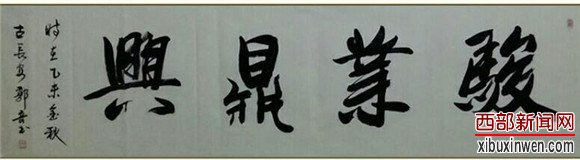 駿業鼎興
時在乙未金秋
古長安郭吾書
西部新闻网
xibuxinwen.com